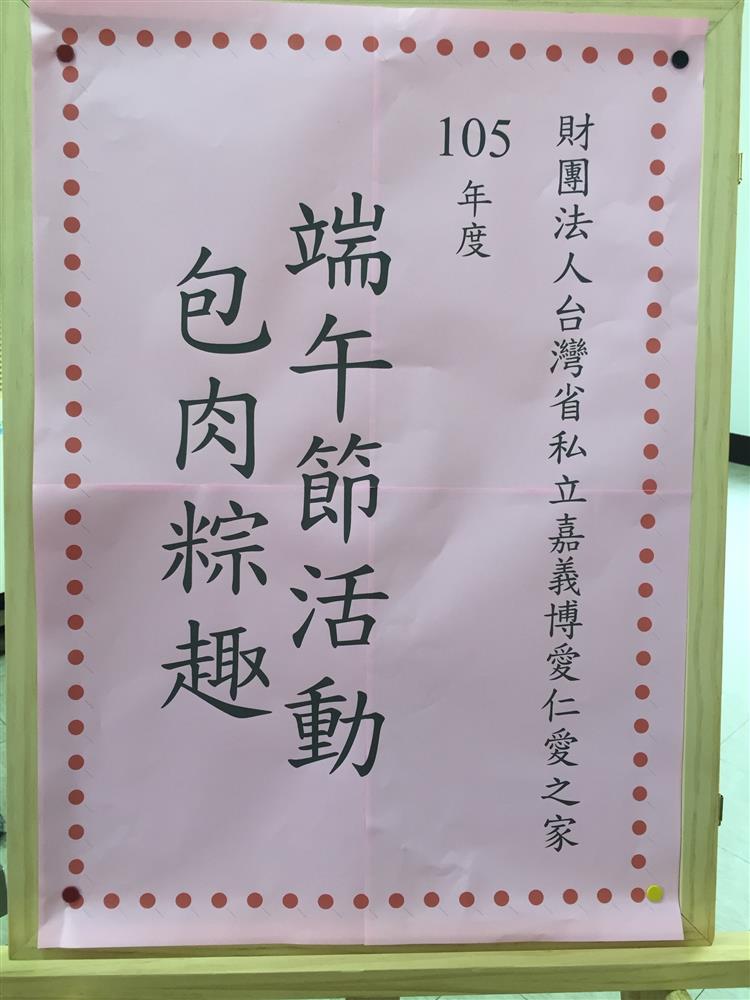 財團法人台灣省私立嘉義博愛仁愛之家
105年度
端午節活動
包肉粽趣